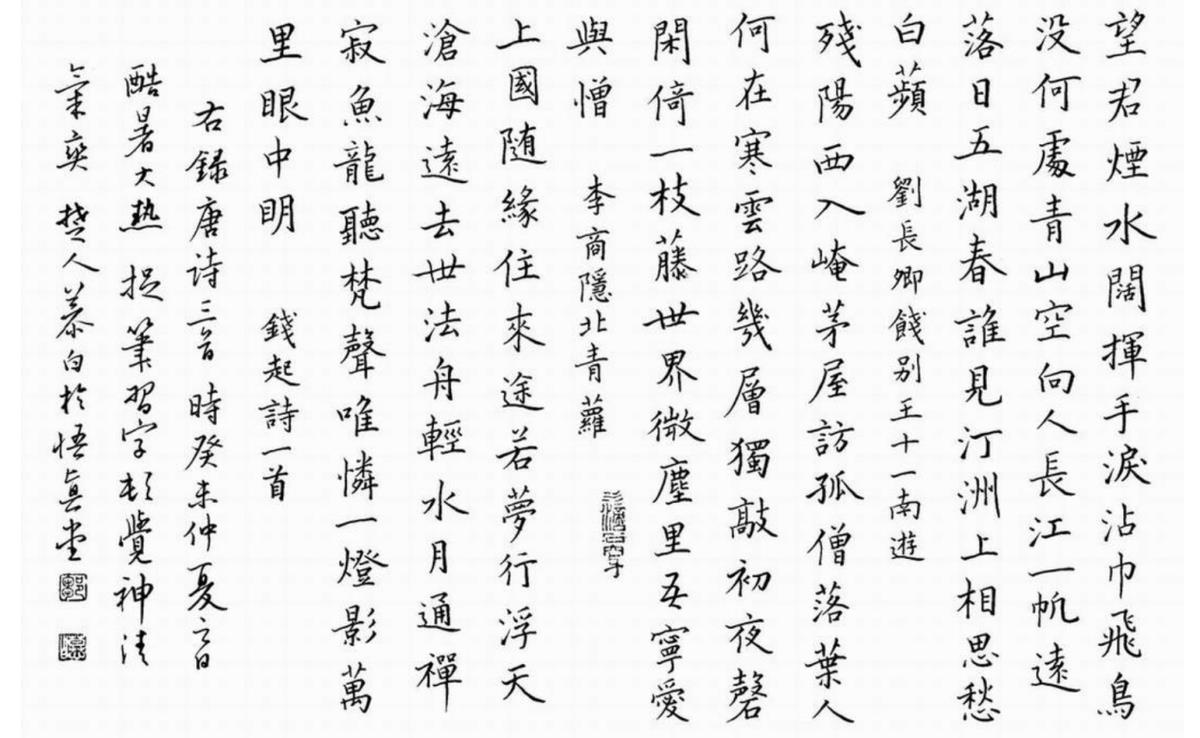 望君煙水闊揮手淚沾巾飛鳥
没何處青山空向人長江一帆遠
落日五湖春誰見汀洲上相思愁
白蘋 劉長卿餞别王十一南遊
殘陽西入崦茅屋訪孤僧落葉人
何在寒雲路幾層獨敲初夜磬
閑倚一枝藤世界微塵里吾寧愛
與憎 李商隱北青蘿
上國随緣住來途若夢行浮天
滄海遠去世法舟輕水月通禪
寂魚龍聽梵聲唯憐一燈影萬
里眼中明 錢起詩一首
右録唐詩三首時癸未仲夏日
酷暑大熱捉筆習字頓覺神清
氣爽 楚人慕白於悟真堂